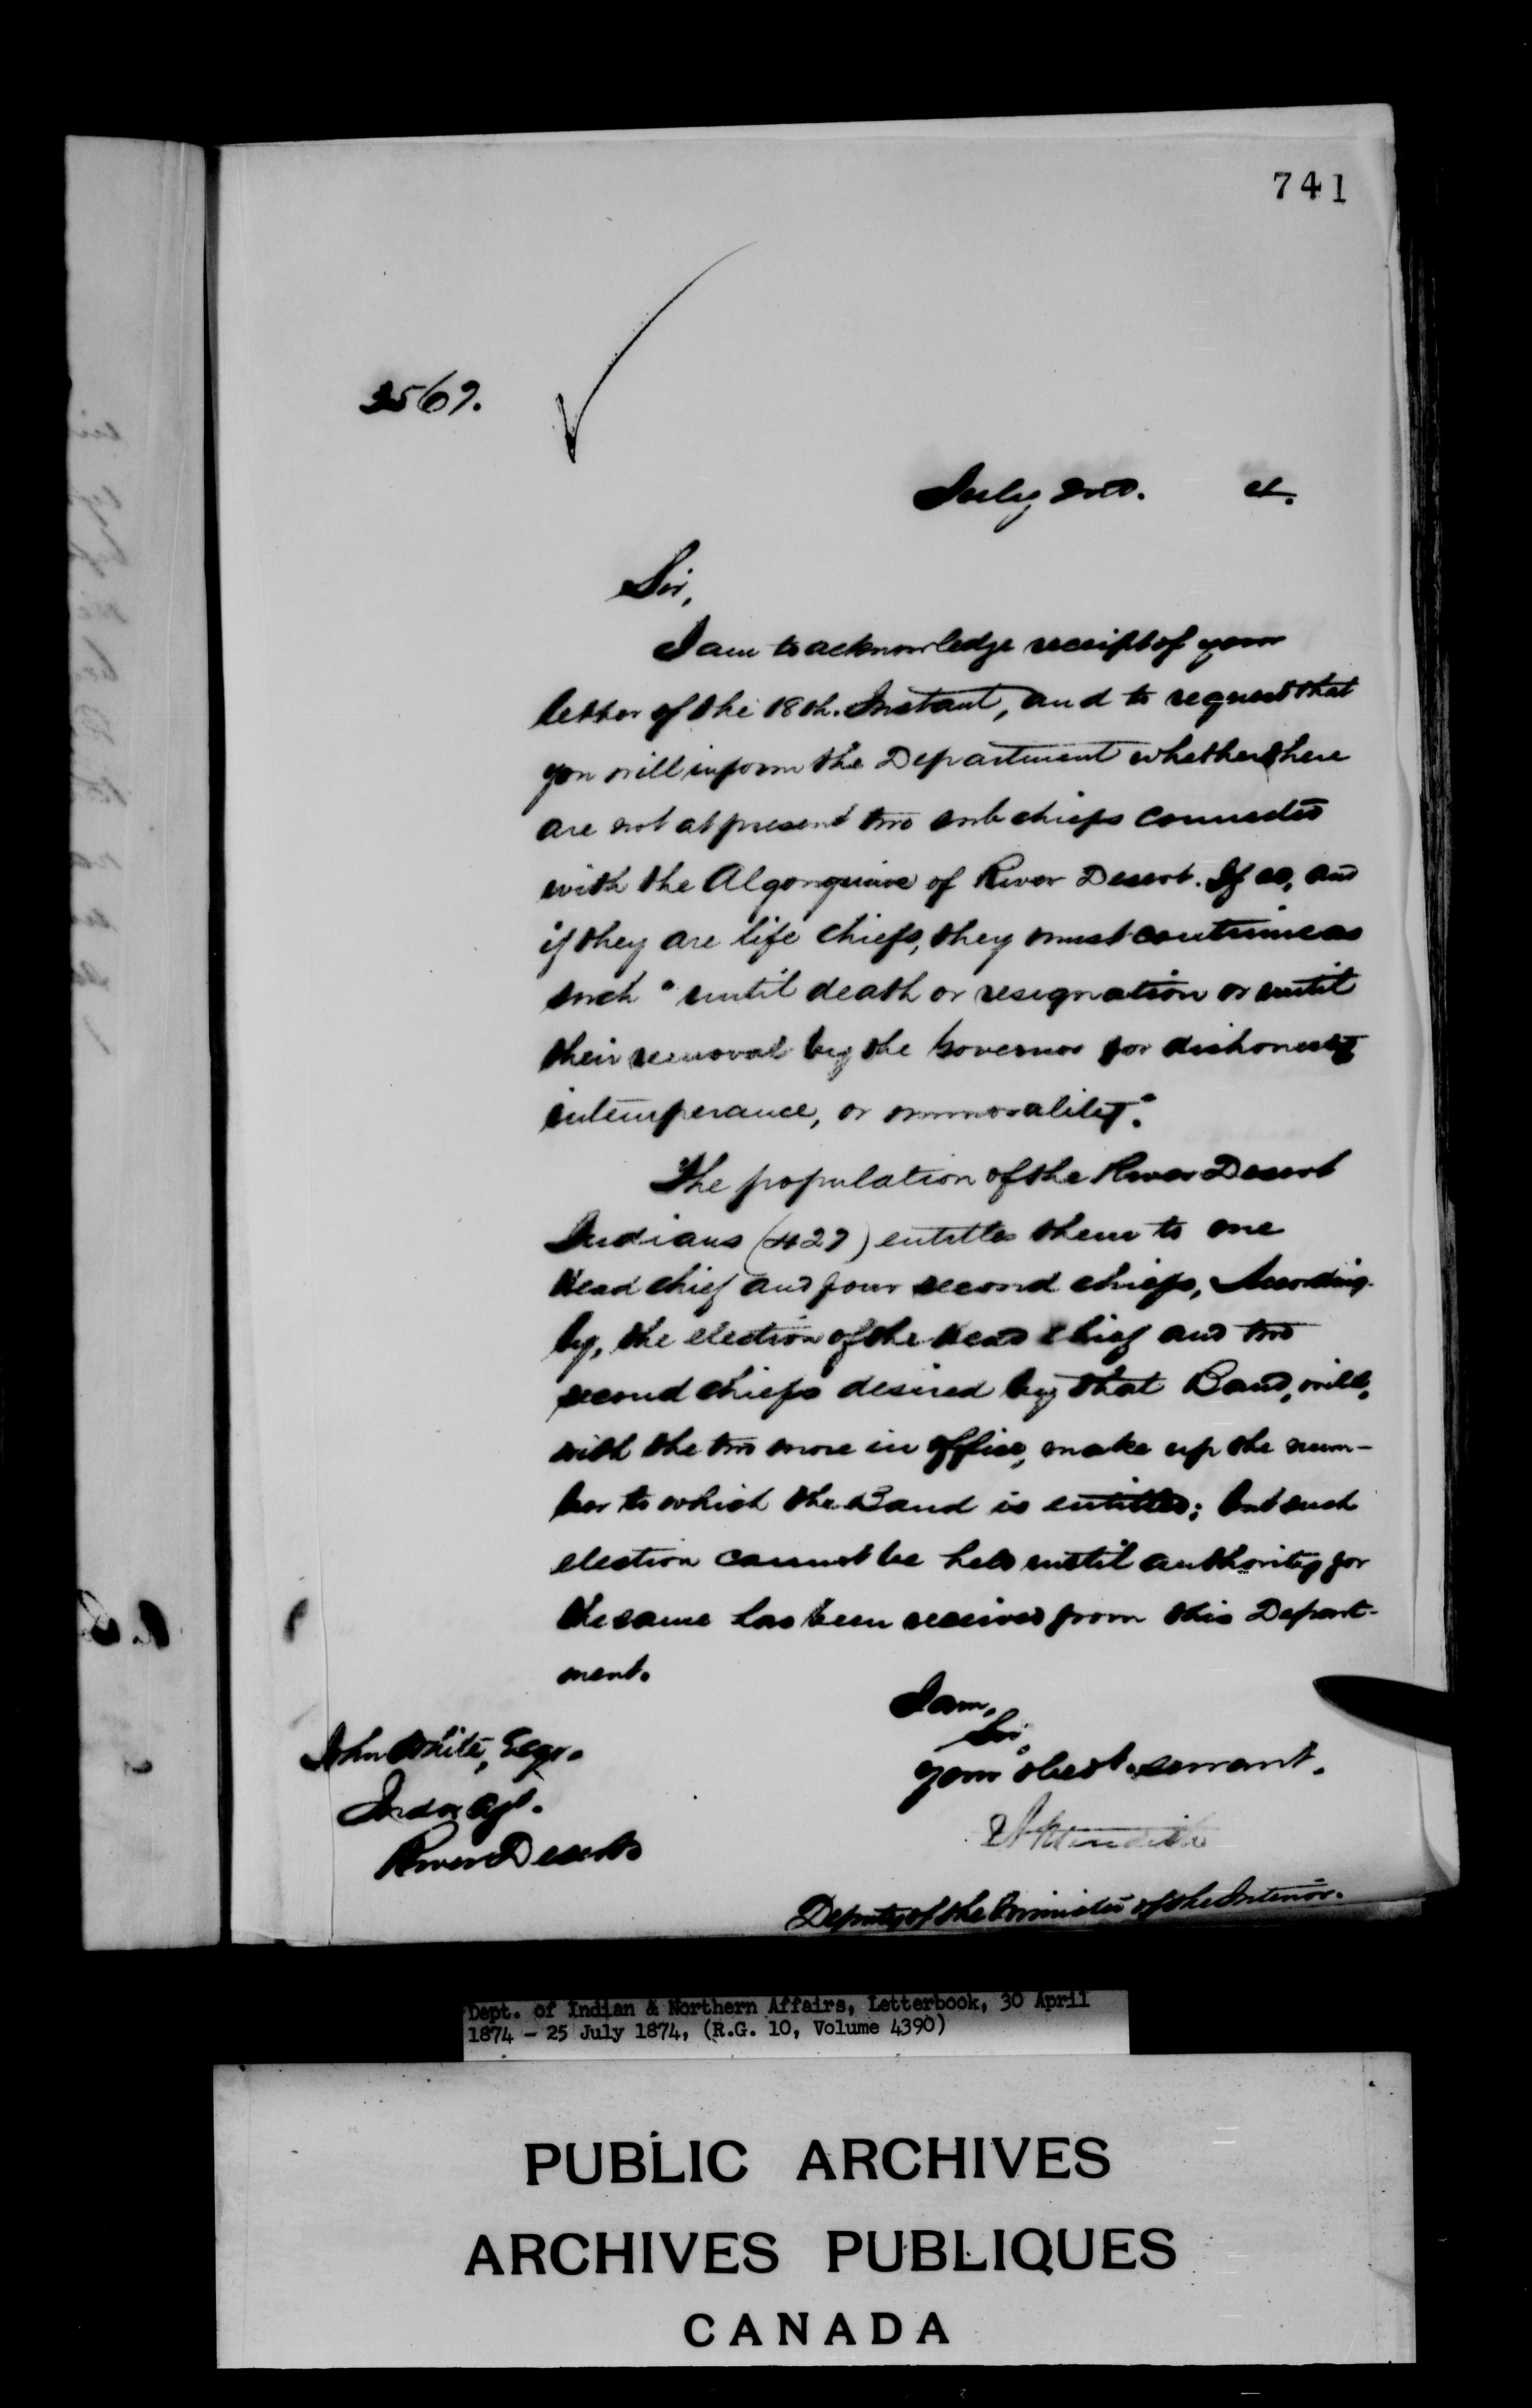 741
3567.
July 2nd. 4.
Sir,
I am to acknowledge receipt of your
letter of the 18th. Instant, and to request that
you will inform the Department whether there
are not at present two sub chiefs connected
with the Algonquins of River Desert. If so, and
if they are life chiefs, they must continue as
such "until death or resignation or until
their removal by the Governor for dishonesty
intemperance, or immorality".
The population of the River Desert
Indians (427) entitles them to one
Head chief and four second chiefs, According-
ly, the election of the Head Chief and two
second chiefs desired by that Band, will,
with the two now in office, make up the num-
ber to which the Band is entitled; but such
election cannot be held until authority for
the same has been received from this Depart-
ment.
I am,
Sir,
Your obedt. servant.
Deputy of the Minister of the Interior.
John White, Esqr.
Indn Agt.
River Desert
Dept. of Indian & Northern Affairs, Letterbook, 30 April
1874 - 25 July 1874, (R.G. 10, Volume 4390)
PUBLIC ARCHIVES
ARCHIVES PUBLIQUES
CANADA